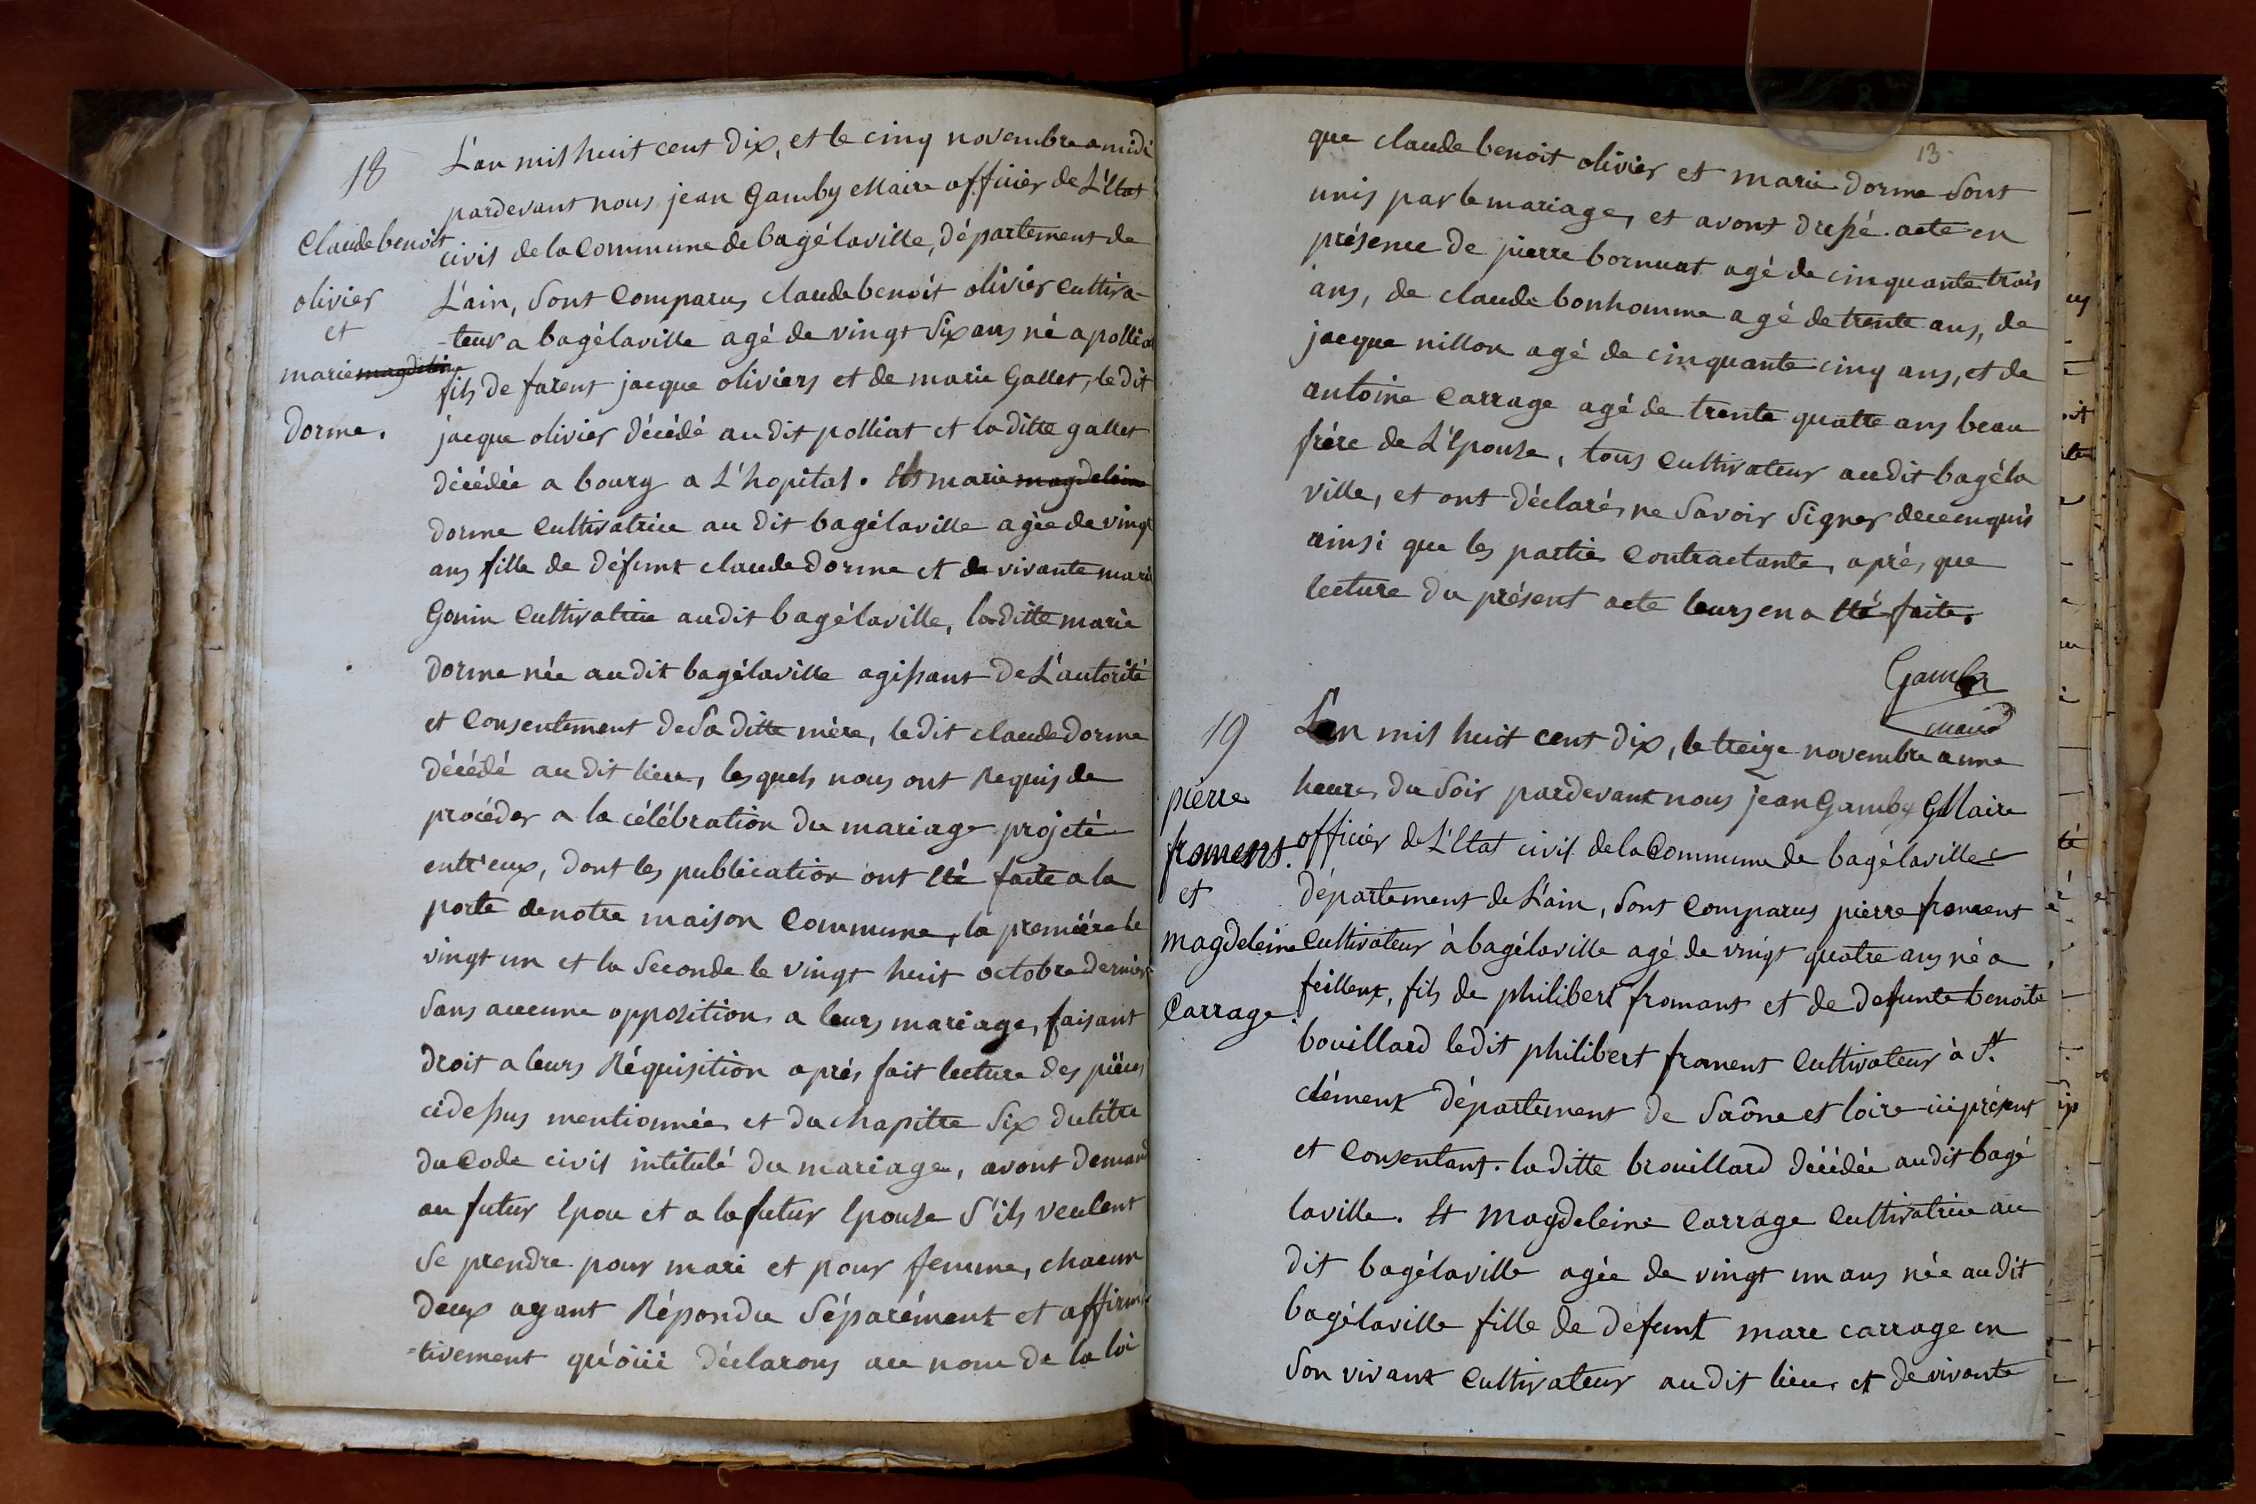 18
Claude benoit
olivier
et
marie magdeleine
dorme.
L'an mil huit cent dix, et le cinq novembre a midi
pardevant nous jean Gamby Maire officier de L'Etat
civil de la Commune de bagélaville, département de
L'ain, sont Comparus claude benoit olivier Cultiva-
-teur a bagélaville agé de vingt six ans né a polliat
fils de jacque oliviers et de marie Gallet, le dit
jacque olivier décédé au dit polliat et la ditte gallet
décédée a bourg a L'hopital. Et marie magdeleine
dorme Cultivatrice au dit bagélaville agée de vingt
ans fille de défunt claude dorme et de vivante marie
Gonin Cultivatrice audit bagélaville, la ditte marie
dorme née audit bagélaville agissant de L'autorité
et Consentement de sa ditte mère, le dit claude dorme
décédé au dit lieu, lesquels nous ont Requis de
procéder a la célébration du mariage projeté
entr'eux, dont les publication ont été faite a la
porte de notre maison Commune, la première le
vingt un et la seconde le vingt huit octobre dernier
sans aucune opposition a leurs mariage, faisant
droit a leurs Réquisition après fait lecture des pièces
cidessus mentionnées et du chapitre six du titre
du Code civil intitulé du mariage, avont demand
au futur Epou et a la futur Epouse s'ils veulent
se prendre pour mari et pour femme, chacun
deux ayant Répondu séparément et affirma
-tivement qu'öüi déclarons au nom de la loi
13
que claude benoit olivier et marie dorme sont
unis par le mariage, et avont dressé acte en
présence de pierre bornuat agé de cinquante trois
ans, de claude bonhomme agé de trente ans, de
jacque nillon agé de cinquante cinq ans, et de
antoine Carrage agé de trente quatre ans beau
frère de L'Epouse, tous Cultivateur audit bagéla
ville, et ont déclarés ne savoir signer de ce enquis
ainsi que les partie Contractante, après que
lecture du présent acte leurs en a été faite.
Gamby
maire
19
pierre
froment.
et
magdeleine
Carrage
L'an mil huit cent dix, le treize novembre a une
heure du soir pardevant nous jean Gamby Maire
officier de L'Etat civil de la Commune de bagélaville
département de L'ain, sont Comparus pierre froment
Cultivateur à bagélaville agé de vingt quatre ans né a
feillent, fils de philibert fromant et de defunte benoite
bouillard ledit philibert froment Cultivateur à St.
clément département de Saône et loire ici présent
et Consentant. la ditte brouillard décédée audit bagé
laville. Et Magdeleine Carrage Cultivatrice au
dit bagélaville agée de vingt un ans née audit
bagélaville fille de défunt marc carrage en
son vivant Cultivateur audit lieu et de vivante